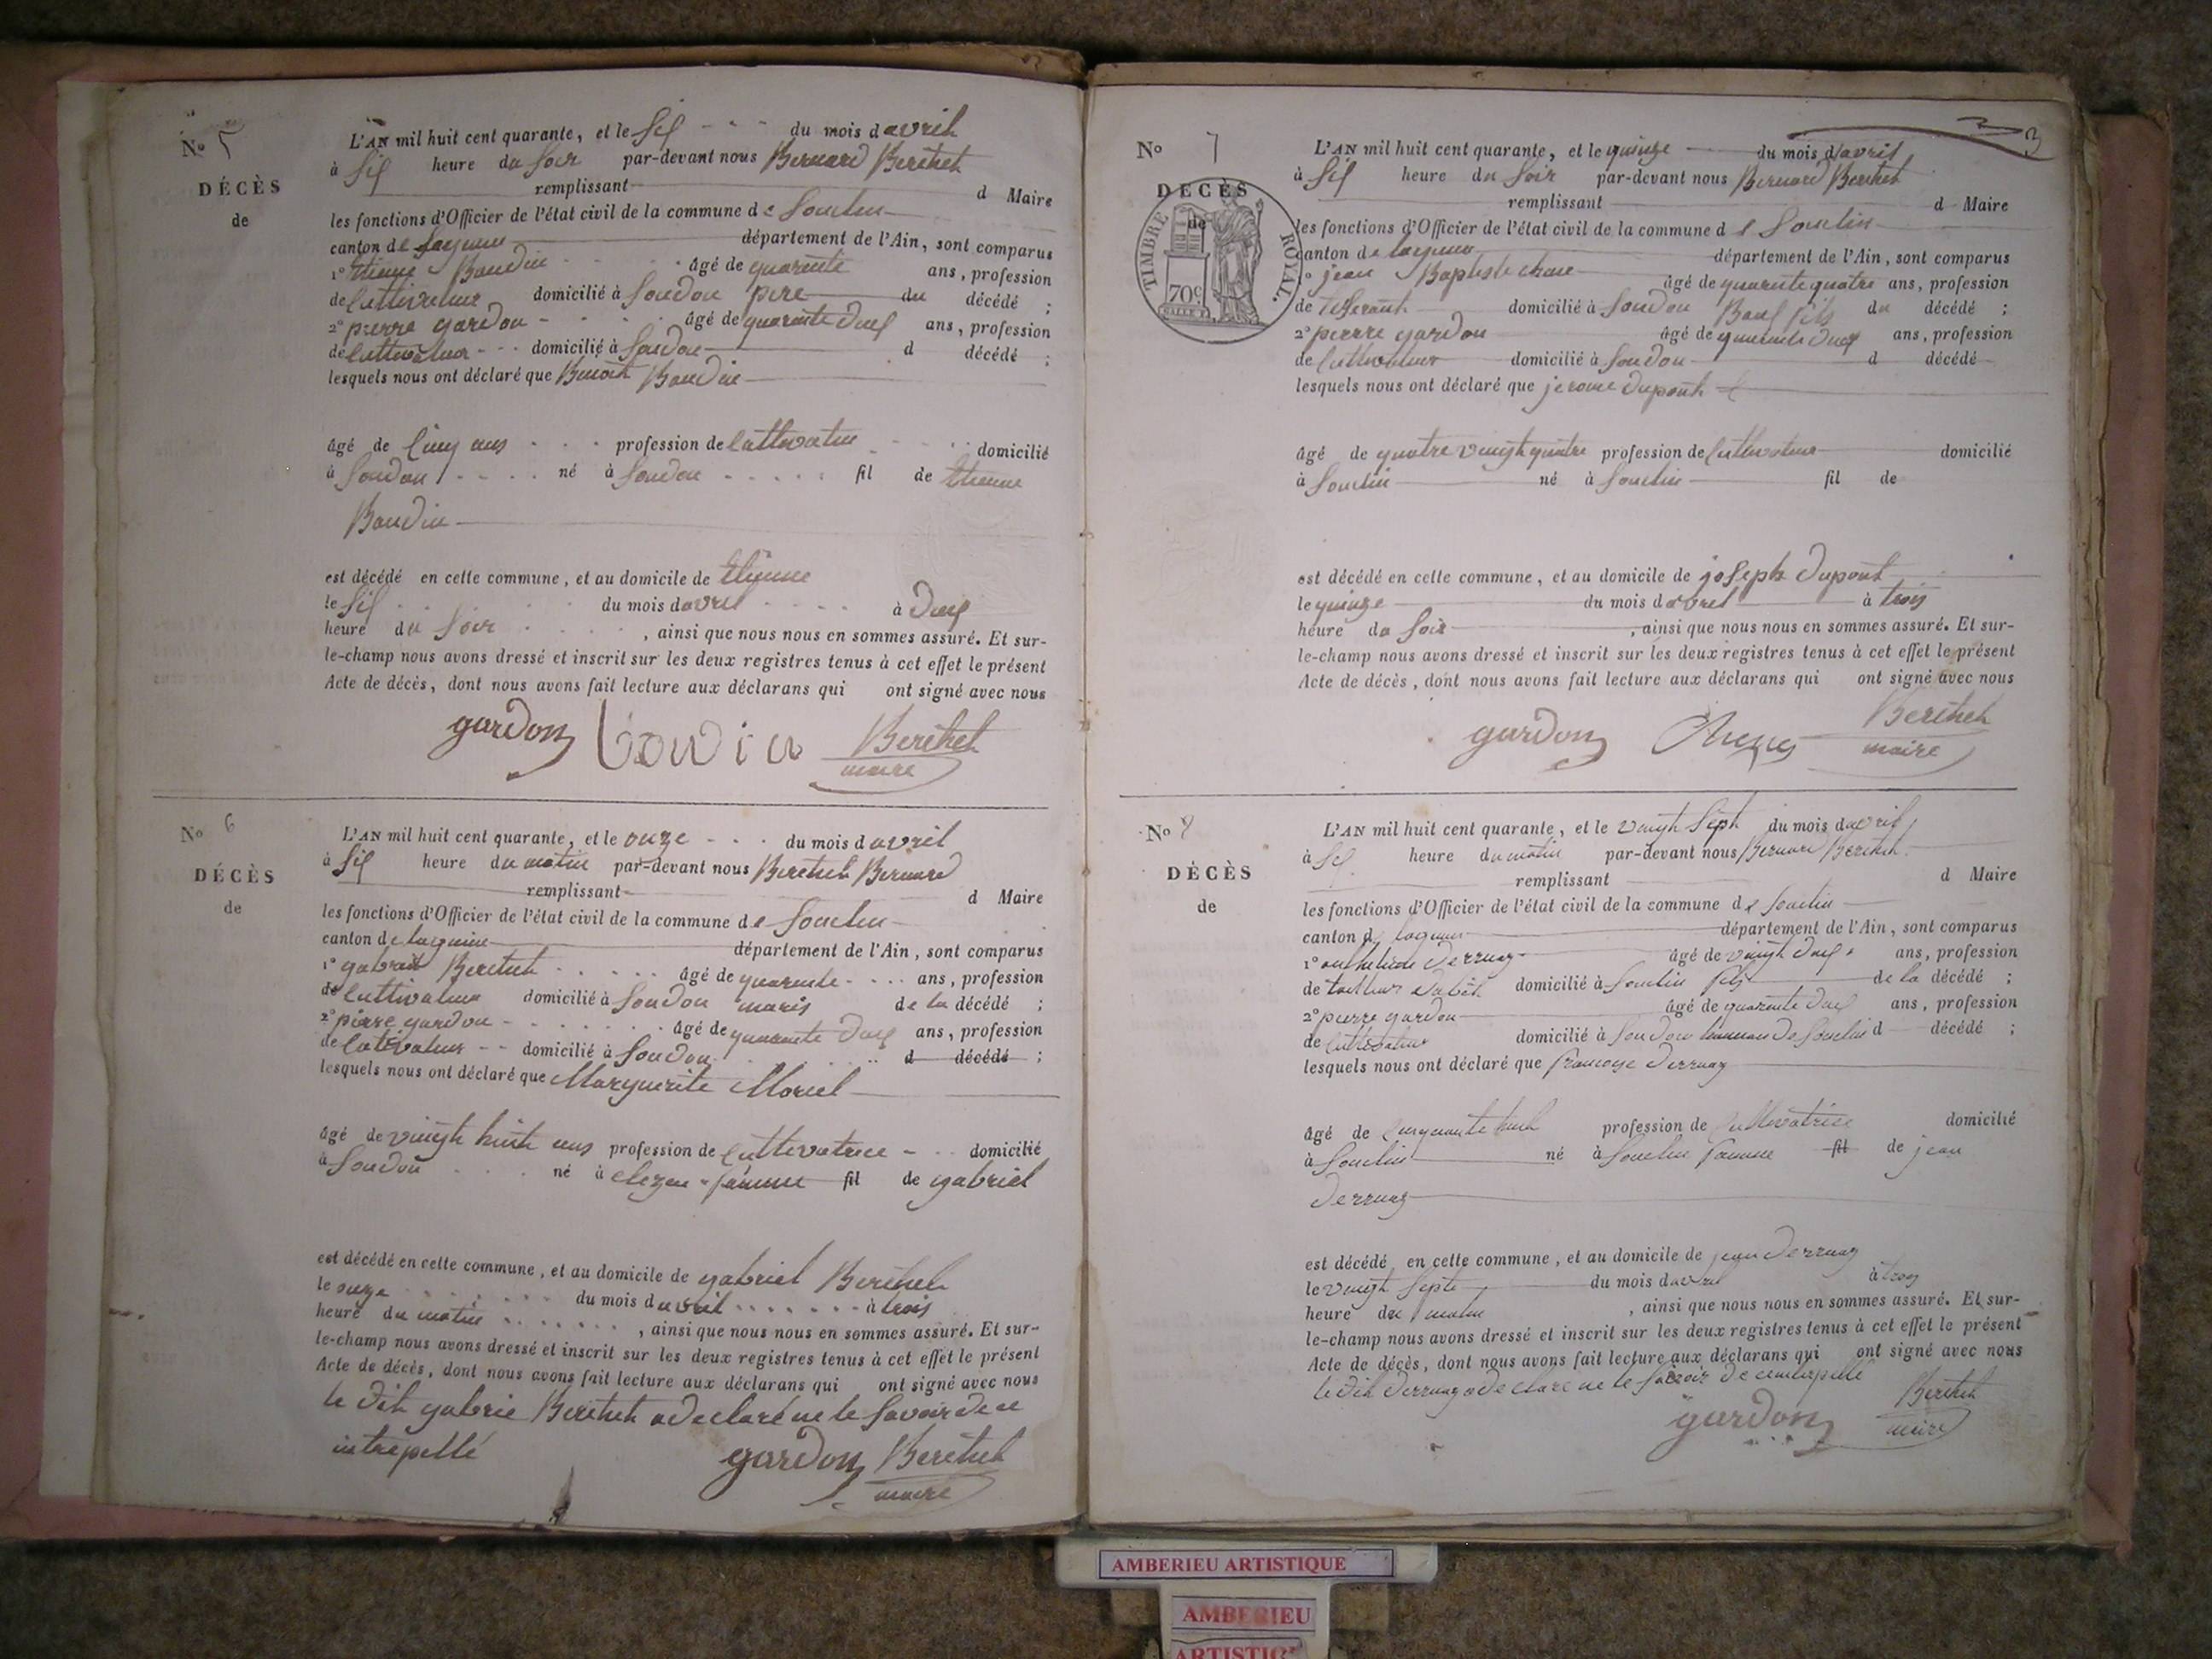 No 5
DÉCÈS
de
L'AN mil huit cent quarante, et le six du mois d avril
à six heure du soir par-devant nous Bernard Berthet
remplissant d Maire
les fonctions d'Officier de l'état civil de la commune de Souclin
canton de Lagnieu département de l'Ain, sont comparus
1° Etienne Baudin âgé de quarante ans, profession
de cultivateur domicilié à Soudon père du décédé ;
2° pierre gardon âgé de quarante deux ans, profession
de cultivateur domicilié à Soudon d décédé ;
lesquels nous ont déclaré que Benoit Baudin
âgé de cinq ans profession de cultivateur domicilié
à Soudon né à Soudon fil de Etienne
Baudin
est décédé en cette commune, et au domicile de Etienne
le six du mois d avril à deux
heure du soir , ainsi que nous nous en sommes assuré. Et sur-
le-champ nous avons dressé et inscrit sur les deux registres tenus à cet effet le présent
Acte de décès, dont nous avons fait lecture aux déclarans qui ont signé avec nous
gardon boudin Berthet
maire
No 6
DÉCÈS
de
L'AN mil huit cent quarante, et le onze du mois d avril
à six heure du matin par-devant nous Berthet Bernard
remplissant d Maire
les fonctions d'Officier de l'état civil de la commune de Souclin
canton de lagnieu département de l'Ain, sont comparus
1° gabriel Berthet âgé de quarante ans, profession
de cultivateur domicilié à Soudon maris de la décédé ;
2° pierre gardon âgé de quarante deux ans, profession
de cultivateur domicilié à Soudon d décédé ;
lesquels nous ont déclaré que Marguerite Moriel
âgé de vingt huit ans profession de cultivatrice domicilié
à Soudon né à femme fil de gabriel
est décédé en cette commune, et au domicile de gabriel Berthet
le onze du mois d avril à trois
heure du matin , ainsi que nous nous en sommes assuré. Et sur-
le-champ nous avons dressé et inscrit sur les deux registres tenus à cet effet le présent
Acte de décès, dont nous avons fait lecture aux déclarans qui ont signé avec nous
le dit gabrie Berthet a declaré ne le savoir de ce
intrepellé gardon Berthet
maire
3
No 7
DÉCÈS
de
TIMBRE ROYAL.
70c
L'AN mil huit cent quarante, et le quinze du mois d'avril
à six heure du soir par-devant nous Bernard Berthet
remplissant d Maire
les fonctions d'Officier de l'état civil de la commune d e Souclin
canton de lagnieu département de l'Ain, sont comparus
1° jean Baptiste âgé de quarante quatre ans, profession
de domicilié à Soudon Baux fils du décédé ;
2° pierre gardon âgé de quarante deux ans, profession
de cultivateur domicilié à Soudon d décédé
lesquels nous ont déclaré que jerome dupont
âgé de quatre vingt quatre profession de cultivateur domicilié
à Souclin né à Souclin fil de
est décédé en cette commune, et au domicile de joseph dupont
le quinze du mois d avril à trois
heure du soir , ainsi que nous nous en sommes assuré. Et sur-
le-champ nous avons dressé et inscrit sur les deux registres tenus à cet effet le présent
Acte de décès, dont nous avons fait lecture aux déclarans qui ont signé avec nous
gardon Berthet
maire
No 8
DÉCÈS
de
L'AN mil huit cent quarante, et le vingt sept du mois d avril
à six heure du matin par-devant nous Bernard Berthet
remplissant d Maire
les fonctions d'Officier de l'état civil de la commune de Souclin
canton d lagnieu département de l'Ain, sont comparus
1° derruaz âgé de vingt deux ans, profession
de tailleur d'abit domicilié à Souclin fils de la décédé ;
2° pierre gardon âgé de quarante deux ans, profession
de cultivateur domicilié à Soudon de Souclin d décédé ;
lesquels nous ont déclaré que francoise derruaz
âgé de cinquante huit profession de cultivatrice domicilié
à Souclin né à Souclin femme fil de jean
derruaz
est décédé en cette commune, et au domicile de jean derruaz
le vingt septe du mois d avril à trois
heure du matin , ainsi que nous nous en sommes assuré. Et sur-
le-champ nous avons dressé et inscrit sur les deux registres tenus à cet effet le présent
Acte de décès, dont nous avons fait lecture aux déclarans qui ont signé avec nous
le dit derruaz a declare ne le savoir de
gardon Berthet
maire
AMBERIEU ARTISTIQUE
AMBERIEU
ARTISTIQUE